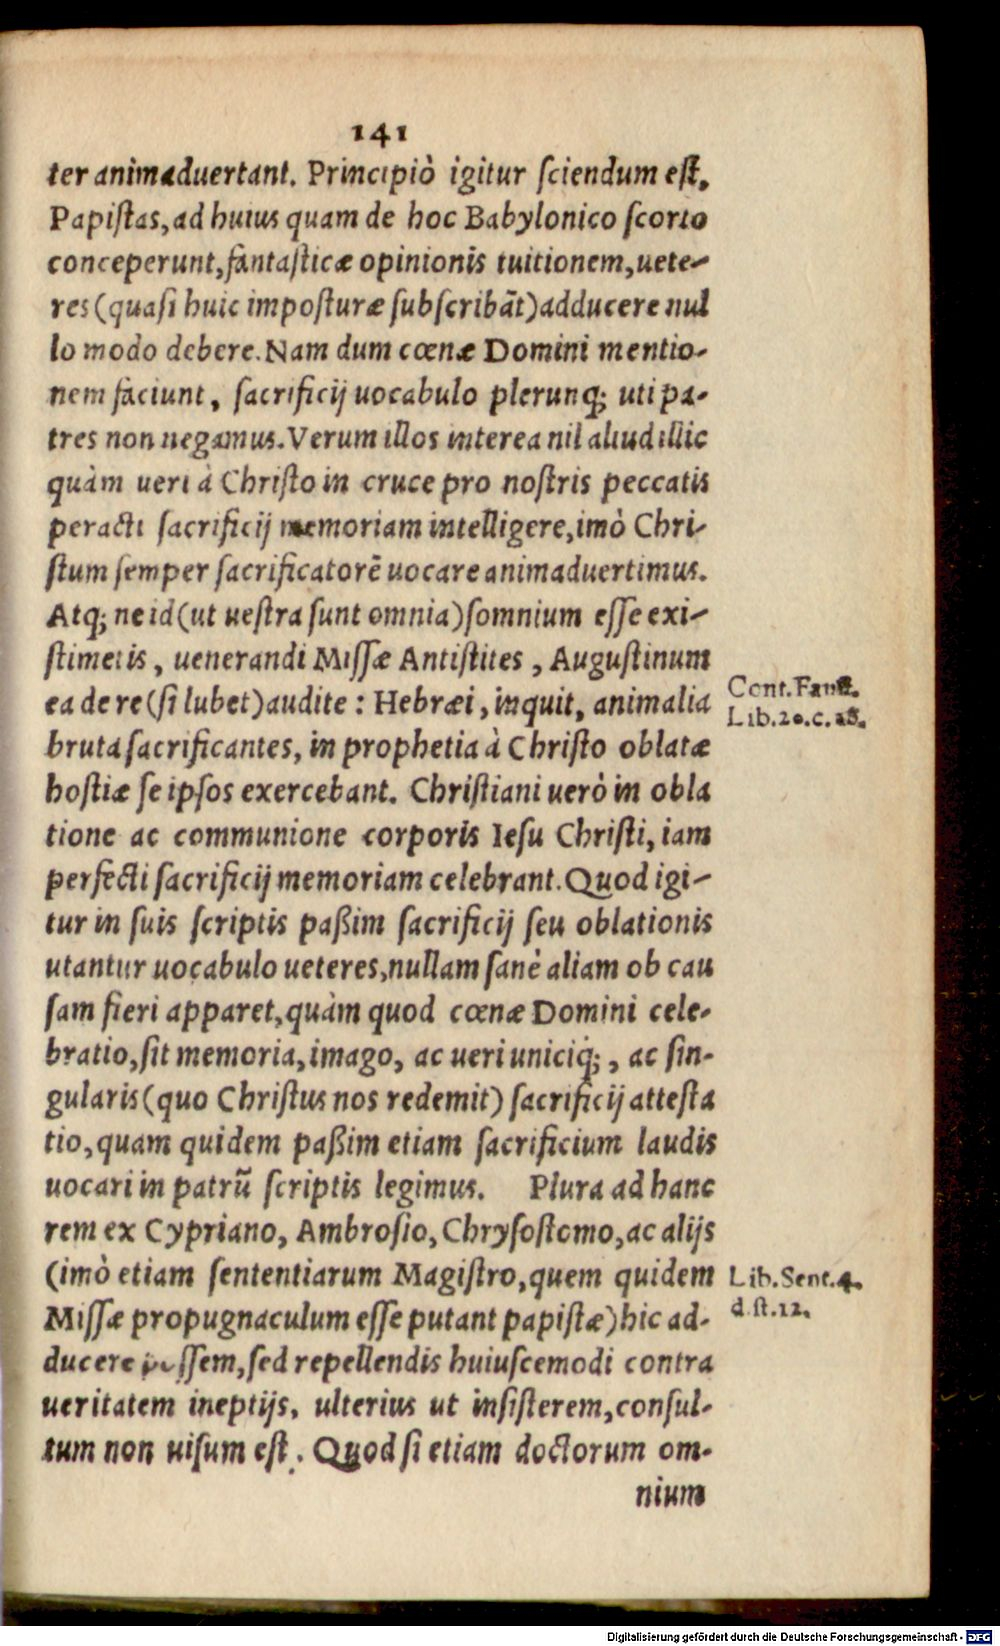 141
ter animaduertant. Principiò igitur sciendum est,
Papistas, ad huius quam de hoc Babylonico scorto
conceperunt, fantasticæ opinionis tuitionem, uete-
res (quasi huic imposturæ subscribãt) adducere nul
lo modo debere. Nam dum cœnæ Domini mentio-
nem faciunt, sacrificij uocabulo plerunq; uti pa-
tres non negamus. Verum illos interea nil aliud illic
quàm ueri à Christo in cruce pro nostris peccatis
peracti sacrificij memoriam intelligere, imò Chri-
stum semper sacrificatorẽ uocare animaduertimus.
Atq; ne id (ut uestra sunt omnia) somnium esse exi-
stimetis, uenerandi Missæ Antistites, Augustinum
ea de re (si lubet) audite : Hebræi, inquit, animalia
Cont. Faust.
Lib. 20. c.
bruta sacrificantes, in prophetia à Christo oblatæ
hostiæ se ipsos exercebant. Christiani uerò in obla
tione ac communione corporis Iesu Christi, iam
perfecti sacrificij memoriam celebrant. Quod igi-
tur in suis scriptis paßim sacrificij seu oblationis
utantur uocabulo ueteres, nullam sanè aliam ob cau
sam fieri apparet, quàm quod cœnæ Domini cele-
bratio, sit memoria, imago, ac ueri uniciq́;, ac sin-
gularis (quo Christus nos redemit) sacrificij attesta
tio, quam quidem paßim etiam sacrificium laudis
uocari in patrũ scriptis legimus. Plura ad hanc
rem ex Cypriano, Ambrosio, Chrysostomo, ac alijs
(imò etiam sententiarum Magistro, quem quidem
Lib. Sent. 4.
dist. 12.
Missæ propugnaculum esse putant papistæ) hic ad-
ducere possem, sed repellendis huiuscemodi contra
ueritatem ineptijs, ulterius ut insisterem, consul-
tum non uisum est. Quod si etiam doctorum om-
nium
Digitalisierung gefördert durch die Deutsche Forschungsgemeinschaft - DFG